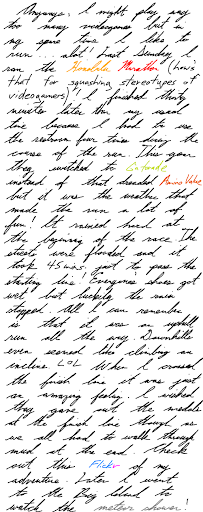 Anyways, I might play way
too many videogames but in
my spare time I like to
run... alot! Last Sunday I
ran the Honolulu Marathon (how's
that for squashing stereotypes of
videogamers)! I finished thirty
minutes later than my usual
time because I had to use
the restroom four times during the
course of the race. This year
they switched to Gatorade
instead of that dreaded Amino Value
but it was the weather that
made the run a lot of
fun! It rained hard at
the beginning of the race. The
streets were flooded and it
took 45 mins just to pass the
starting line! Everyones shoes got
wet but luckily the rain
stopped. All I can remember
is that it was an uphill
run all the way. Downhills
even seemed like climbing an
incline LOL When I crossed
the finish line it was just
an amazing feeling. I wished
they gave out the medals
at the finish line though as
we all had to walk through
mud at the end. Check
out this Flickr of my
adventure. Later I went
to the Big Island to
watch the meteor shower!